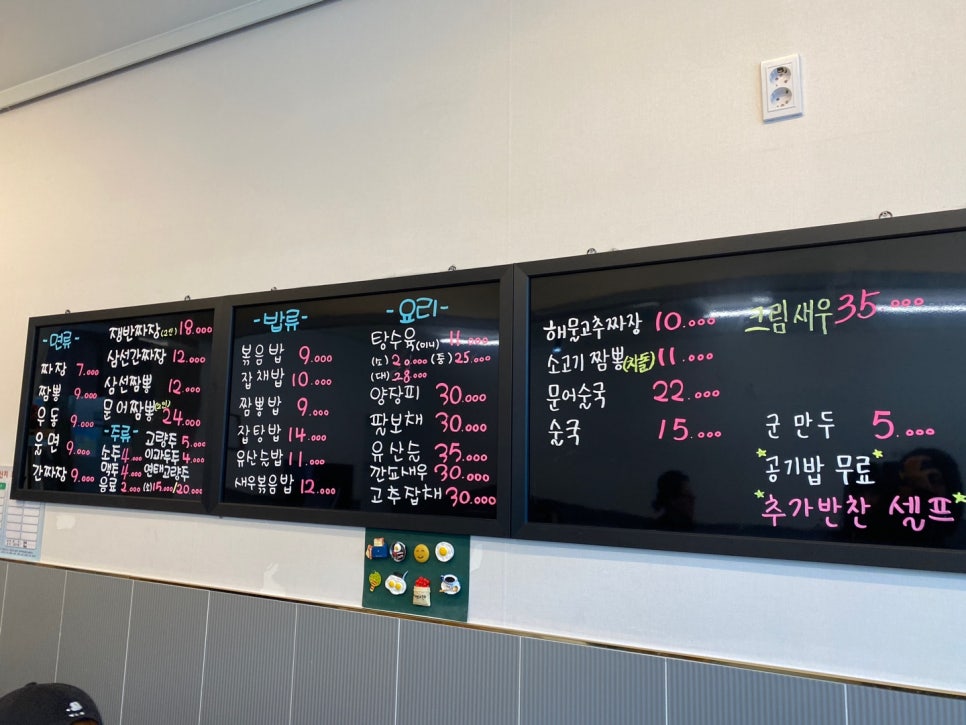 -면류-
짜장 7.000
짬뽕 9.000
우동 9.000
울면 9.000
간짜장 9.000
쟁반짜장(2인) 18.000
삼선간짜장 12.000
삼선짬뽕 12.000
문어짬뽕(2인) 24.000
-주류-
소주 4.000
맥주 4.000
음료 2.000
고량주 5.000
이과두주 4.000
연태고량주
(소)15.000/20.000
-밥류-
볶음밥 9.000
잡채밥 10.000
짬뽕밥 9.000
잡탕밥 14.000
유산슬밥 11.000
새우볶음밥 12.000
-요리-
탕수육(미니) 11.000
(소) 20.000 (중) 25.000
(대) 28.000
양장피 30.000
팔보채 30.000
유산슬 35.000
깐파새우 30.000
고추잡채 30.000
해물고추짜장 10.000
소고기 짬뽕(차돌) 11.000
문어술국 22.000
술국 15.000
크림새우 35.000
군만두 5.000
공기밥 무료
추가반찬 셀프